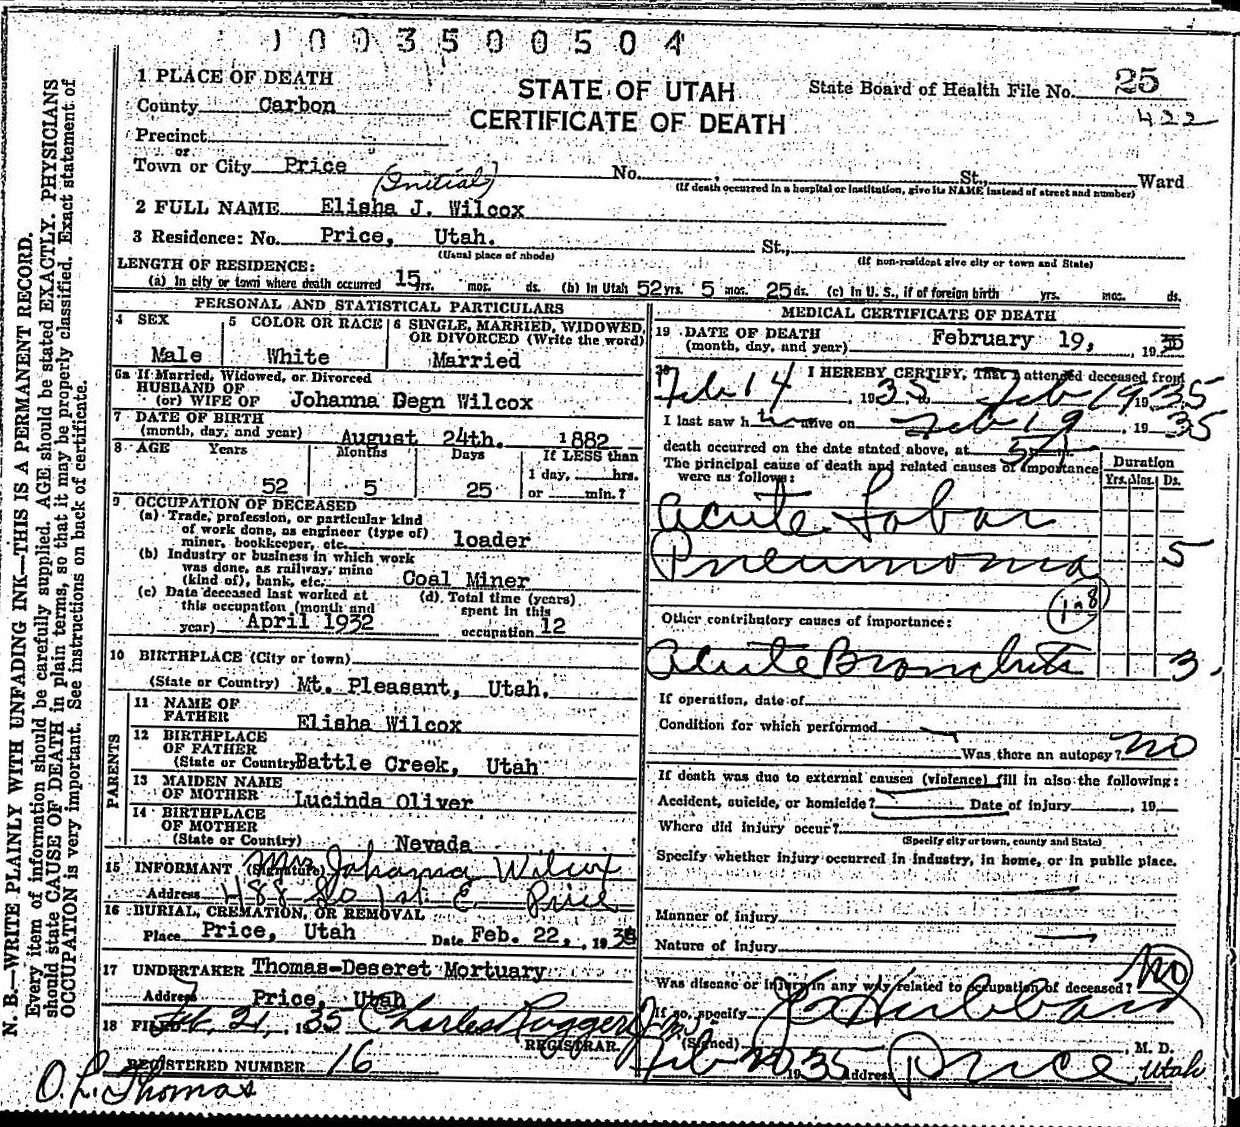 1003500504
1 PLACE OF DEATH
STATE OF UTAH
CERTIFICATE OF DEATH
State Board of Health File No. 25
422
County Carbon
Precinct
or
Town or City Price No. , St., Ward
(If death occurred in a hospital or institution, give its NAME instead of street and number)
(Initial)
2 FULL NAME Elisha J. Wilcox
3 Residence: No. Price, Utah. St.,
(Usual place of abode) (If non-resident give city or town and State)
LENGTH OF RESIDENCE:
(a) In city or town where death occurred 15 yrs. mos. ds. (b) In Utah 52 yrs. 5 mos. 25 ds. (c) In U. S., if of foreign birth yrs. mos. ds.
PERSONAL AND STATISTICAL PARTICULARS
4 SEX
Male
5 COLOR OR RACE
White
6 SINGLE, MARRIED, WIDOWED,
OR DIVORCED (Write the word)
Married
6a If Married, Widowed, or Divorced
HUSBAND OF
(or) WIFE OF Johanna Degn Wilcox
7 DATE OF BIRTH
(month, day, and year) August 24th. 1882
8 AGE Years Months Days If LESS than
1 day, hrs.
52 5 25 or min.?
9 OCCUPATION OF DECEASED
(a) Trade, profession, or particular kind
of work done, as engineer (type of)
miner, bookkeeper, etc. loader
(b) Industry or business in which work
was done, as railway, mine
(kind of), bank, etc. Coal Miner
(c) Date deceased last worked at
this occupation (month and
year) April 1932
(d) Total time (years)
spent in this
occupation 12
10 BIRTHPLACE (City or town)
(State or Country) Mt. Pleasant, Utah.
PARENTS
11 NAME OF
FATHER Elisha Wilcox
12 BIRTHPLACE
OF FATHER
(State or Country) Battle Creek, Utah
13 MAIDEN NAME
OF MOTHER Lucinda Oliver
14 BIRTHPLACE
OF MOTHER
(State or Country) Nevada
15 INFORMANT (Signature) Mrs Johanna Wilcox
Address 488 So 1st. E. Price
16 BURIAL, CREMATION, OR REMOVAL
Place Price, Utah Date Feb. 22, , 1935
17 UNDERTAKER Thomas-Deseret Mortuary
Address Price, Utah
18 FILED Feb. 21, 1935 Charles Ruggeri
REGISTRAR
REGISTERED NUMBER 16
O. L. Thomas
MEDICAL CERTIFICATE OF DEATH
19 DATE OF DEATH
(month, day, and year) February 19, , 1935
20 I HEREBY CERTIFY, That I attended deceased from
Feb 14 , 1935 Feb 19 1935
I last saw him alive on Feb 19 , 1935
death occurred on the date stated above, at
The principal cause of death and related causes of importance
were as follows:
Duration
Yrs. Mos. Ds.
Acute Lobar
Pneumonia 5
108
Other contributory causes of importance:
Acute Bronchitis 3
If operation, date of
Condition for which performed
Was there an autopsy? no
If death was due to external causes (violence) fill in also the following:
Accident, suicide, or homicide? Date of injury , 19
Where did injury occur?
(Specify city or town, county and State)
Specify whether injury occurred in industry, in home, or in public place.
Manner of injury
Nature of injury
Was disease or injury in any way related to occupation of deceased? No
If so, specify
(Signed) Hubbard , M. D.
Feb 20 1935 Address Price Utah
N. B.—WRITE PLAINLY WITH UNFADING INK—THIS IS A PERMANENT RECORD.
Every item of information should be carefully supplied. AGE should be stated EXACTLY. PHYSICIANS
should state CAUSE OF DEATH in plain terms, so that it may be properly classified. Exact statement of
OCCUPATION is very important. See instructions on back of certificate.